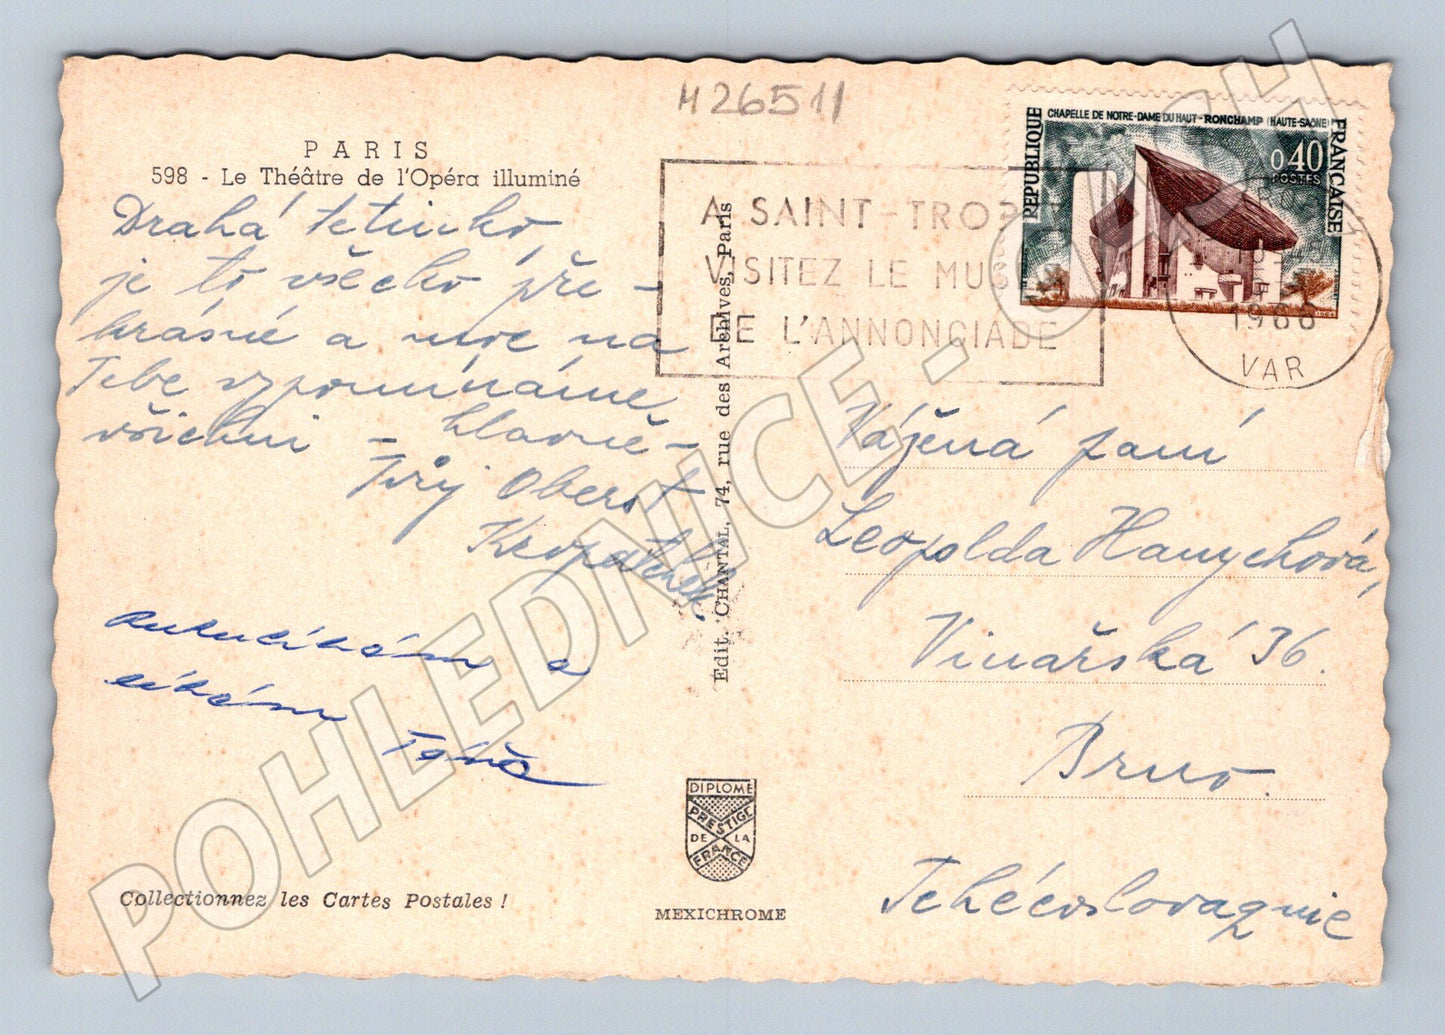 H26511
PARIS
598 - Le Théâtre de l'Opéra illuminé
Drahá tetinko,
je to všecko pře -
krásné a moc na
Tebe vzpomínáme
všichni - hlavně -
Tvůj Oberst
Kropatschek
a
líbám Táňa
Collectionnez les Cartes Postales !
Edit. CHANTAL, 74, rue des Archives, Paris
DIPLOME
PRESTIGE
DE LA
FRANCE
MEXICHROME
A SAINT-TROP
VISITEZ LE MUS
DE L'ANNONCIADE
CHAPELLE DE NOTRE-DAME DU HAUT - RONCHAMP (HAUTE-SAÔNE)
REPUBLIQUE
FRANCAISE
0,40
POSTES
1966
VAR
Vážená paní
Leopolda Hanychová,
Vinařská 36.
Brno.
Tchécoslovaquie
POHLEDNICE - CIHLCH